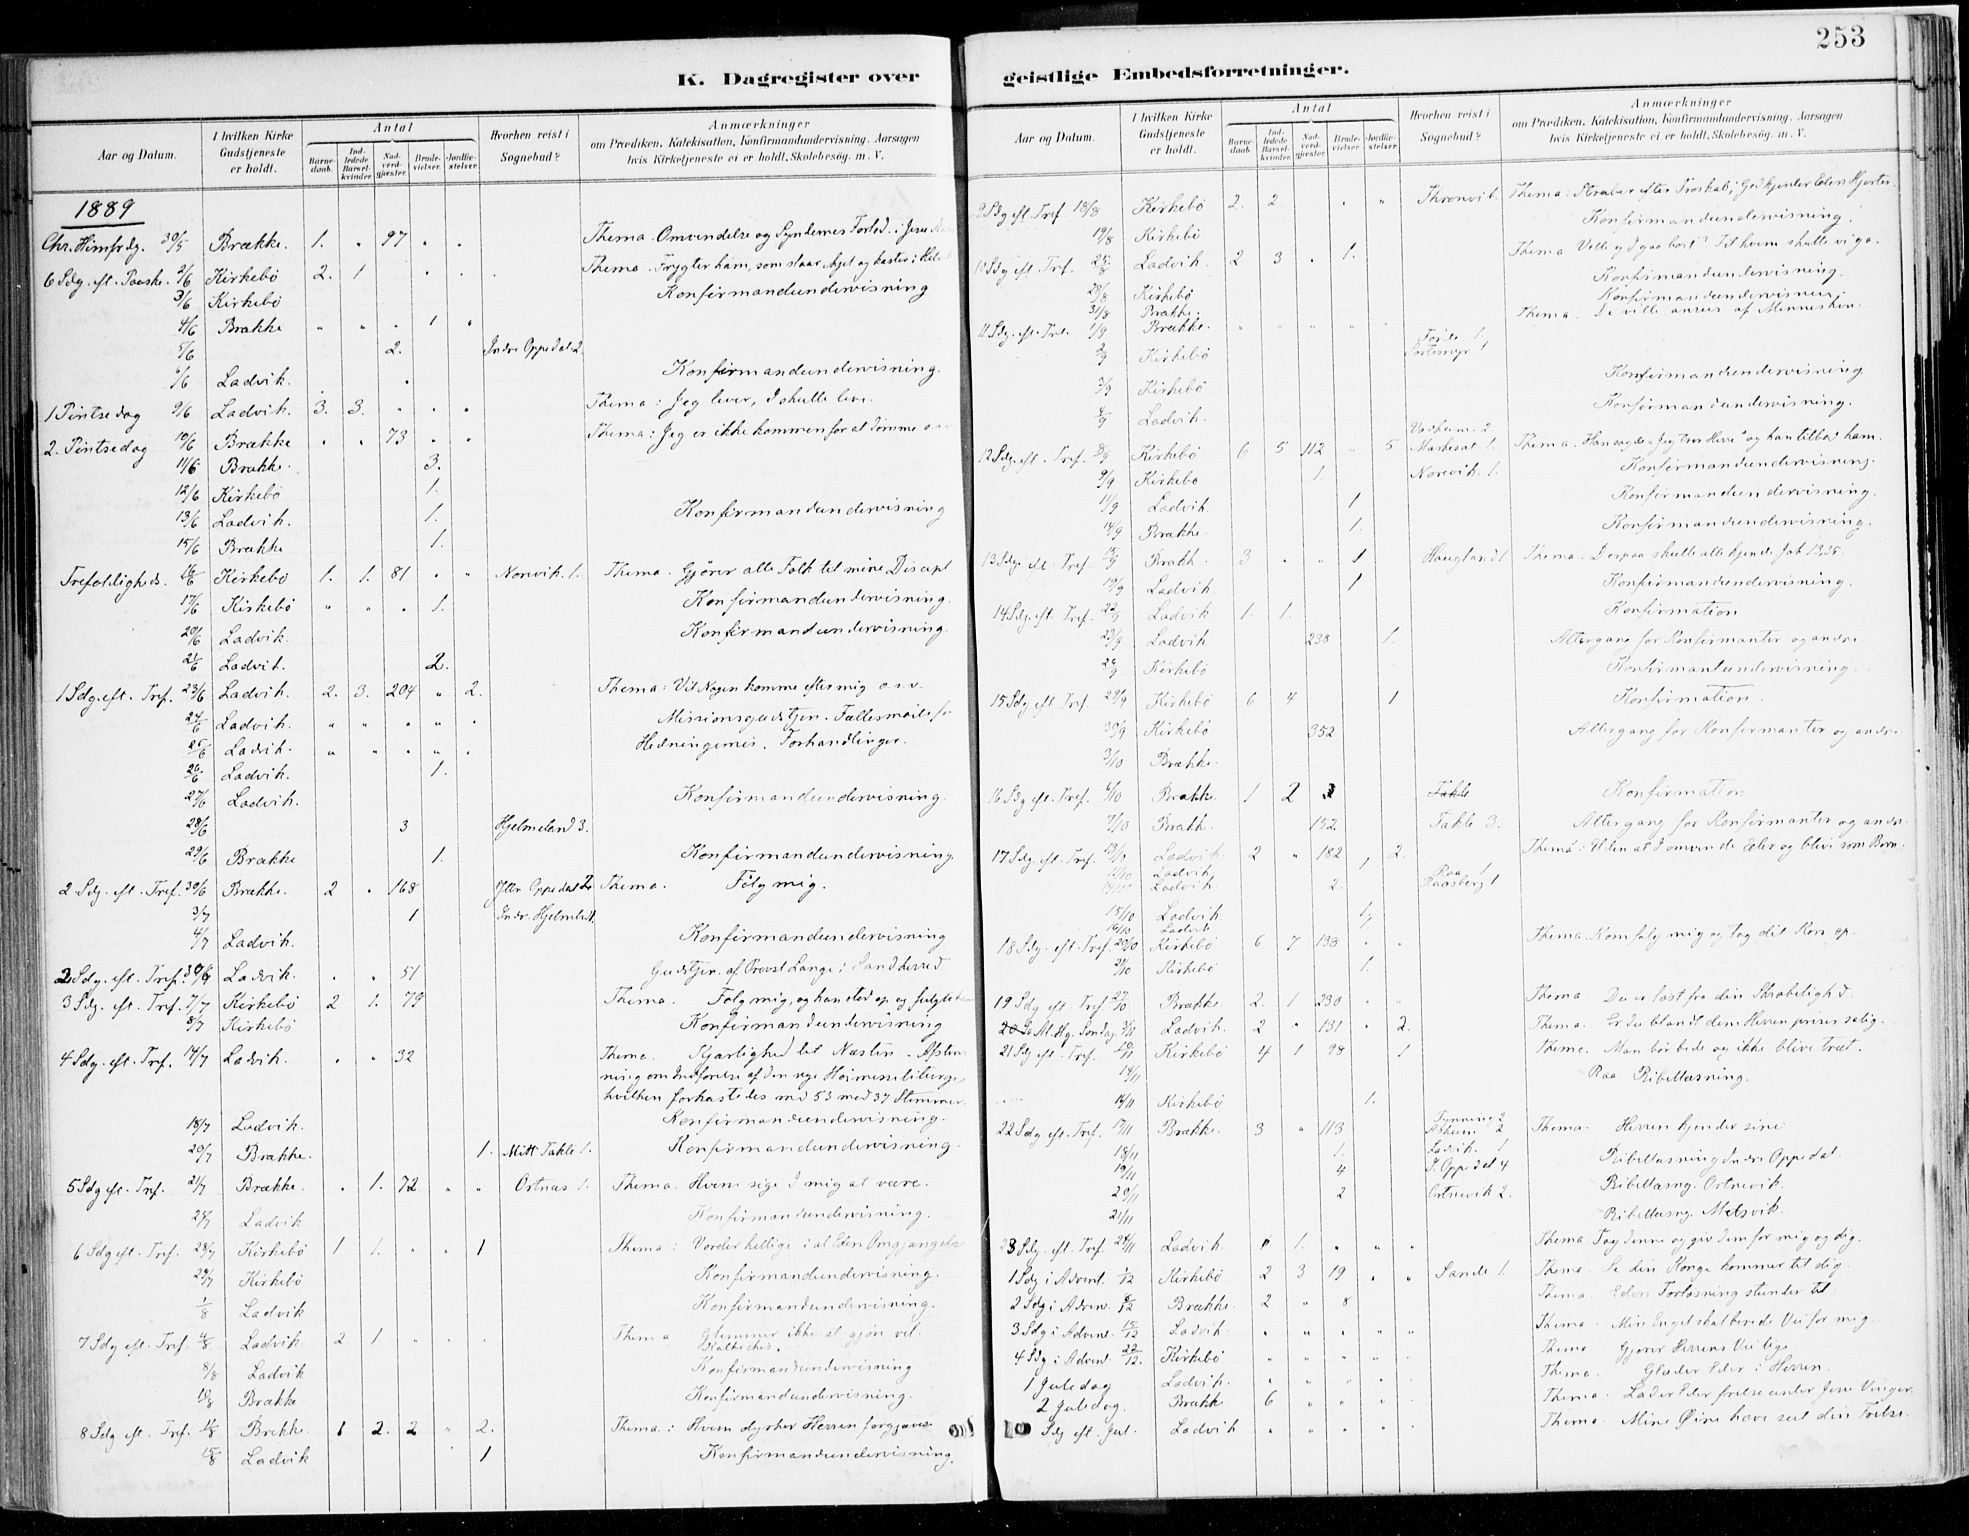 253
K. Dagregister over geistlige Embedsforretninger.
Aar og Datum. I hvilken Kirke Gudstjeneste er holdt. Antal Barnedaab. Indledede Barselkvinder. Nadverdgjæster. Brudevielser. Jordfæstelser. Hvorhen reist i Sognebud? Anmærkninger om Prædiken, Katekisation, Konfirmandundervisning, Aarsagen hvis Kirketjeneste ei er holdt, Skolebesøg, m. V.
1889
Chr. Himfrdg. 30/5 Brække. 1. „ 97 „ „ Thema. Omvendelse og Syndernes Forlad. i Jesu
6 Sdg. eft. Paaske. 2/6 Kirkebø 2. 1 „ „ Thema. Frygter ham, som slaar ihjel og kaster i
3/6 Kirkebø Konfirmandundervisning
4/6 Brække „ „ „ 1 „
5/6 2. Indre Oppedal 2.
6/6 Ladvik. Konfirmandundervisning.
1 Pintsedag 9/6 Ladvik. 3. 3. „ „ „ Thema: Jeg lever, I skulle leve.
2. Pintsedag 10/6 Brække „ „ 73 „ „ Thema: Jeg er ikke kommen for at dømme
11/6 Brække. 3.
12/6 Kirkebø 1.
13/6 Ladvik. 1. Konfirmandundervisning
15/6 Brække 1.
Trefoldigheds. 16/6 Kirkebø 1. 1. 81 „ „ Norevik. 1. Thema. Gjører alle Folk til mine Discipl
17/6 Kirkebø „ „ „ 1. Konfirmandundervisning.
20/6 Ladvik. Konfirmandundervisning.
21/6 Ladvik. 2.
1 Sdg. eft. Tref. 23/6 Ladvik. 2. 3. 204 „ 2. Thema: Vil Nogen komme efter mig o.s.v.
24/6 Ladvik. „ „ „ „ „ Missionsgudstjen. Fællesmøde for
25/6 Ladvik. „ „ „ „ „ Hedningemis. Forhandlinger.
26/6 Ladvik. 1.
27/6 Ladvik. Konfirmandundervisning.
28/6 3 Hjelmeland 3.
29/6 Brække 1. Konfirmandundervisning.
2 Sdg. eft. Tref. 30/6 Brække. 2 „ 168 Ytre Oppedal 2. Thema. Følg mig.
3/7 1 Indr. Hjelmelnd 1.
4/7 Ladvik. Konfirmandundervisning
2 Sdg. eft. Tref. 30/6 Ladvik. „ „ 51 Gudstjen. af Provst Lange i Sandherred
3 Sdg. eft. Tref. 7/7 Kirkebø 2 1. 79 Thema. Følg mig, og han stod op og fulgte
8/7 Kirkebø Konfirmandundervisning
4 Sdg. eft. Tref. 14/7 Ladvik. „ „ 32 Thema. Kjærlighed til Næsten. Afstem
ning om Indførelse af den nye Høimesseliturgi,
hvilken forkastedes med 53 mod 37 Stemmer.
18/7 Ladvik. Konfirmandundervisning.
20/7 Brække. 1. Mitt Takle 1. Konfirmandundervisning.
5 Sdg eft. Tref. 21/7 Brække. „ 1. 72 „ „ Ortnæs 1. Thema. Hvem sige I mig at være.
Ladvik Konfirmandundervisning.
6 Sdg eft. Tref. 28/7 Kirkebø 1 1. „ „ 1 Thema: Vorder hellige i al Eders Omgjængelse
29/7 Kirkebø Konfirmandundervisning.
1/8 Ladvik Konfirmandundervisning.
7 Sdg eft. Tref 4/8 Ladvik 2 1 „ „ „ Thema Glemmer ikke at gjøre vel.
8/8 Ladvik Konfirmandundervisning
10/8 Brække Konfirmandundervisning.
8 Sdg eft. Tref. 11/8 Brække. 1 2. 2 „ 2. Thema: Hvem dyrker Herren forgjæves
15/8 Ladvik 1 Konfirmandundervisning.
Aar og Datum. I hvilken Kirke Gudstjeneste er holdt. Antal Barnedaab. Indledede Barselkvinder. Nadverdgjæster. Brudevielser. Jordfæstelser. Hvorhen reist i Sognebud? Anmærkninger om Prædiken, Katekisation, Konfirmandundervisning, Aarsagen hvis Kirketjeneste ei er holdt, Skolebesøg, m. V.
9 Sdg eft. Tref. 18/8 Kirkebø 2. 2. „ „ Thronvik 1. Thema: Stræber efter Troskab, Gud kjender Eders Hjerter.
19/8 Kirkebø Konfirmandundervisning.
10 Sdg eft. Tref. 25/8 Ladvik. 2 3 „ 1. Thema Ville og I gaa bort" Til hvem skulle vi ga.
28/8 Kirkebø Konfirmandundervisning.
31/8 Brække. Konfirmandundervisning.
11 Sdg. eft. Tref. 1/9 Brække. „ „ „ „ „ Thema. De ville ansees af Mennesken.
2/9 Kirkebø Førde 1.
3/9 Kirkebø Konfirmandundervisning
4/9 Ladvik. Konfirmandundervisning.
12 Sdg. eft. Tref. 8/9 Kirkebø 6 5 112 „ 5 Vadheim. 2. 1. Thema. Han sagde „Jeg tror Herre" og han tilbad ham.
9/9 Kirkebø 1. Norevik. 1. Konfirmandundervisning.
11/9 Ladvik. 1 Konfirmandundervisning.
14/9 Brække. 1. Konfirmandundervisning.
13 Sdg. eft. Tref. 15/9 Brækk. 3 „ „ 1 Haugland 1 Thema. Derpaa skulle alle kjende Joh 13.35.
19/9 Ladvik. 1 Konfirmandundervisning.
14 Sdg. eft. Tref. 22/9 Ladvik 1. 1. Konfirmation
23/9 Ladvik 238 1. Altergang for Konfirmanter og andre
26/9 Kirkebø Konfirmandundervisning.
15 Sdg eft Tref. 29/9 Kirkebø 6 4 1 Konfirmation.
30/9 Kirkebø 352 Altergang for Konfirmanter og andre.
3/10 Brække.
16 Sdg eft. Tref. 6/10 Brække. 1 2 Takle Konfirmation
7/10 Brækk. 152. Takle 3. Altergang for Konfirmanter og andr.
17 Sdg. eft. Tref. Ladvik 2 „ 182 „ 2. Thema: Uden at I omvende Eder og blive som Børn.
Ladvik Raa 1
Ladvik. 2. Raasberg 1
15/10 Ladvik 1.
16/10 Ladvik 1
18 Sdg. eft. Tref 20/10 Kirkebø 6 7 138 „ „ Thema. Kom følg mig og tag dit Kors op.
21/10 Kirkebø 1.
19 Sdg eft. Tref 27/10 Brække. 2. 1 230 „ „ Thema. Du er løst fra din Skrøbelighd.
All. Hg. Søndag 3/11 Ladvik. 2 „ 131 „ 2. Thema. Er du blandt dem Herren priser salig.
21 Sdg eft. Tref. 10/11 Kirkebø 4 1 98 1 Thema. Man bør bede og ikke blive træt.
14/11 Raa Bibellæsning.
14/11 Kirkebø 1.
22 Sdg eft. Tref. 17/11 Brække. 3 „ 113 Thema. Herren kjender sine
18/11 1. Ladvik. 1
19/11 4 I. Oppedal 4 Bibellæsning Indre Oppedal.
20/11 2 Ortnevik 2. Bibellæsng. Ortnevik.
21/11 Bibellæsng. Massvik.
23 Sdg. eft. Tref. 24/11 Ladvik. „ 1. „ „ „ Thema. Tag denne og giv dem for mig og dig.
1 Sdg i Advent. 1/12 Kirkebø 2 3 19 „ „ Sande 1. Thema. Se din Konge kommer til dig.
2 Sdg i Adven. 8/12 Brække. 2 „ 8 Thema. Eders Forløsning stunder til.
3 Sdg i Advent. 15/12 Ladvik. „ „ „ „ „ Thema. Min Engel skal berede Vei for mig.
4 Sdg i Advent. 22/12. Kirkebø „ „ „ „ „ Thema Gjører Herrens Vei lige
1 Juledag Ladvik. „ „ „ „ „ Thema. Glæder Eder i Herren.
2 Juledag. Brækk 6 „ „ „ Thema. Lader Eder frelse under Jesu Vinger.
Sdg eft. Jul. Ladvik „ „ „ „ „ Thema. Mine Øine have seet din Frelse.